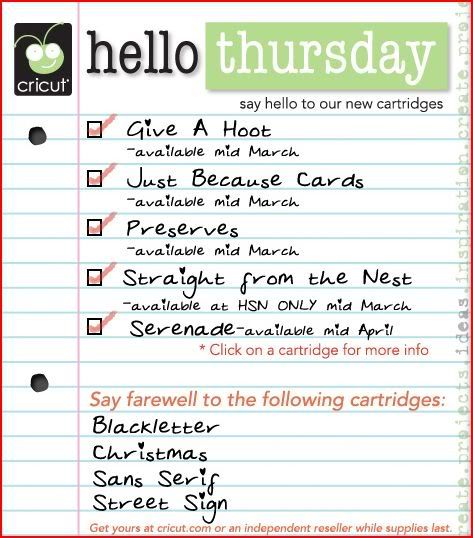 cricut
hello thursday
say hello to our new cartridges
Give A Hoot
-available mid March
Just Because Cards
-available mid March
Preserves
-available mid March
Straight from the Nest
-available at HSN ONLY mid March
Serenade-available mid April
* Click on a cartridge for more info
Say farewell to the following cartridges:
Blackletter
Christmas
Sans Serif
Street Sign
Get yours at cricut.com or an independent reseller while supplies last.
create.projects.ideas.inspiration.create.pro